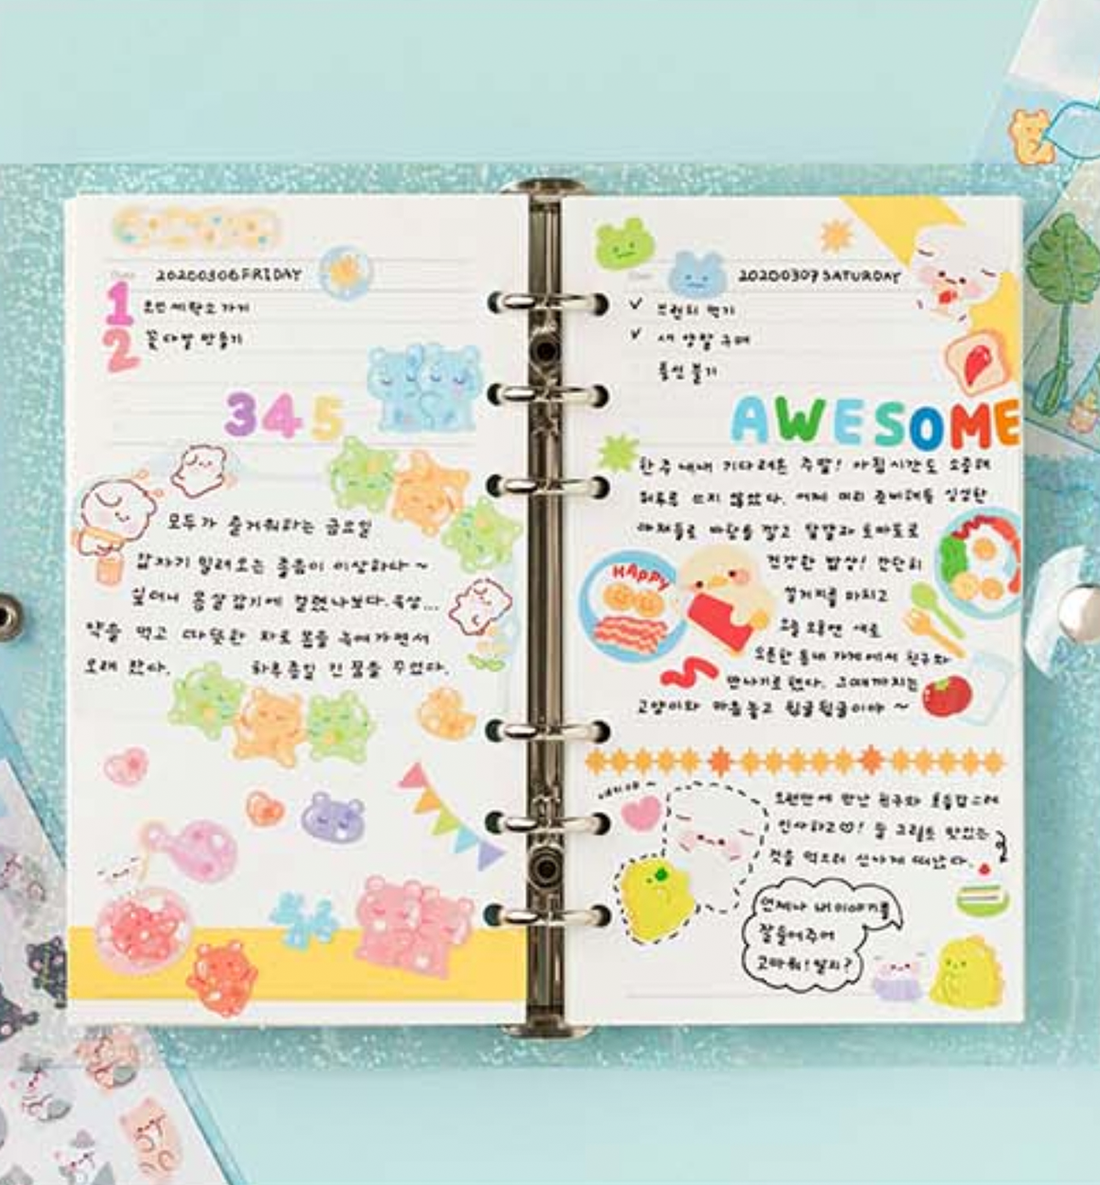 20200306 FRIDAY
1 오전 세탁소 가기
2 꽃다발 만들기
3 4 5
모두가 즐거워하는 금요일
갑자기 밀려오는 졸음이 이상하다 ~
싶더니 몸살감기에 걸렸나보다. 속상...
약을 먹고 따뜻한 차로 몸을 녹여가면서
오래 잤다. 하루종일 긴 꿈을 꾸었다.
20200307 SATURDAY
✓ 브런치 먹기
✓ 새 양말 구매
풍선 불기
AWESOME
한 주 내내 기다려온 주말! 아침시간도 소중해
허투루 쓰지 않았다. 어제 미리 준비해둔 싱싱한
야채들로 바탕을 깔고 달걀과 토마토로
건강한 밥상! 간단히
HAPPY
설거지를 마치고
오늘 오후엔 새로
오픈한 동네 가게에서 친구와
만나기로 했다. 그때까지는
고양이와 마음놓고 뒹굴뒹굴이야 ~
오랜만에 만난 친구와 호들갑스레
인사하고♡! 둘 그림도 맛있는
것을 먹으러 신나게 떠났다.
언제나 내 이야기를
잘 들어주어
고마워! 알지?